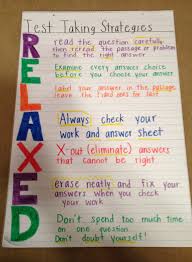 Test Taking Strategies
R read the question carefully,
then reread the passage or problem
to find the right answer
E Examine every answer choice
before you choose your answer
L Label your answer in the passage,
leave the hard ones for last
A Always check your
work and answer sheet
X X-out (eliminate) answers
that cannot be right
E erase neatly and fix your
answers when you check
your work
D Don't spend too much time
on one question
Don't doubt yourself!